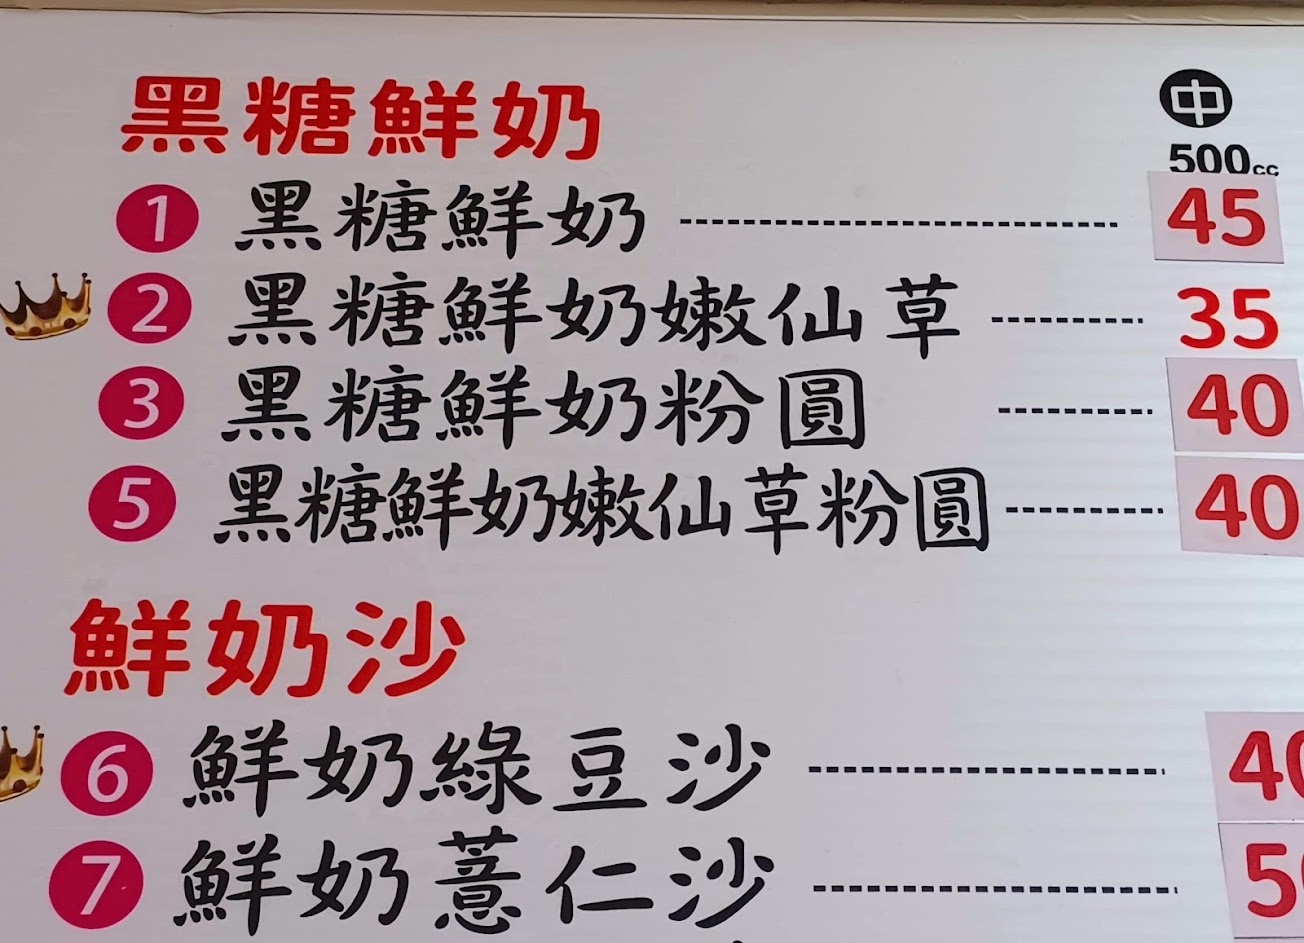 黑糖鮮奶
中
500cc
1 黑糖鮮奶 45
2 黑糖鮮奶嫩仙草 35
3 黑糖鮮奶粉圓 40
5 黑糖鮮奶嫩仙草粉圓 40
鮮奶沙
6 鮮奶綠豆沙 40
7 鮮奶薏仁沙 50